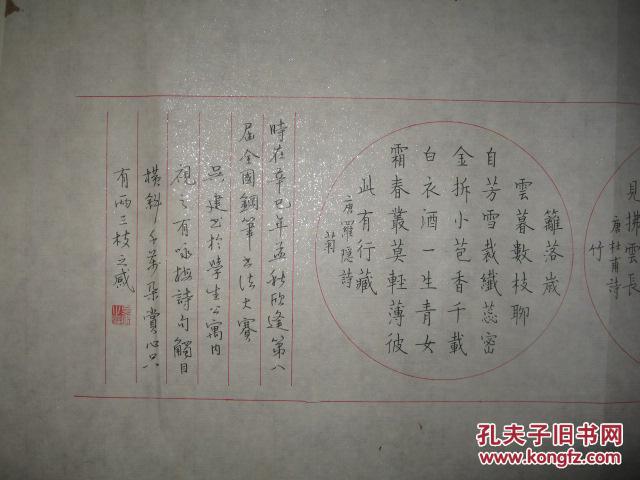 見拂雲長
唐杜甫詩
竹
籬落歲
雲暮數枝聊
自芳雪裁纖蕊密
金拆小苞香千載
白衣酒一生青女
霜春叢莫輕薄彼
此有行藏
唐羅隱詩
菊
時在辛巳年孟秋欣逢第八
屆全國鋼筆書法大賽
吴建書於學生公寓内
硯之有咏梅詩句觸目
橫斜千萬朵賞心只
有兩三枝之感
孔夫子旧书网
www.kongfz.com